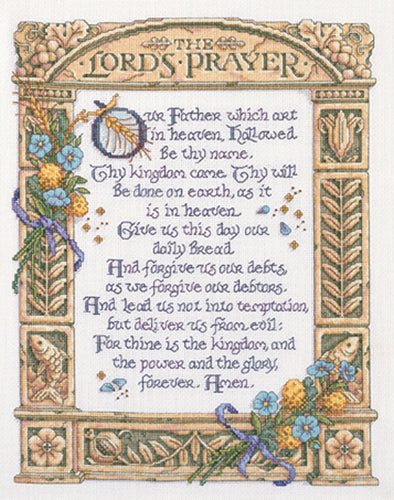 THE
LORDS·PRAYER
Our Father which art
in heaven, Hallowed
Be thy name.
Thy kingdom come. Thy will
Be done on earth, as it
is in heaven.
Give us this day our
daily Bread.
And forgive us our debts,
as we forgive our debtors.
And lead us not into temptation,
but deliver us from evil:
For thine is the kingdom, and
the power and the glory,
forever. Amen.